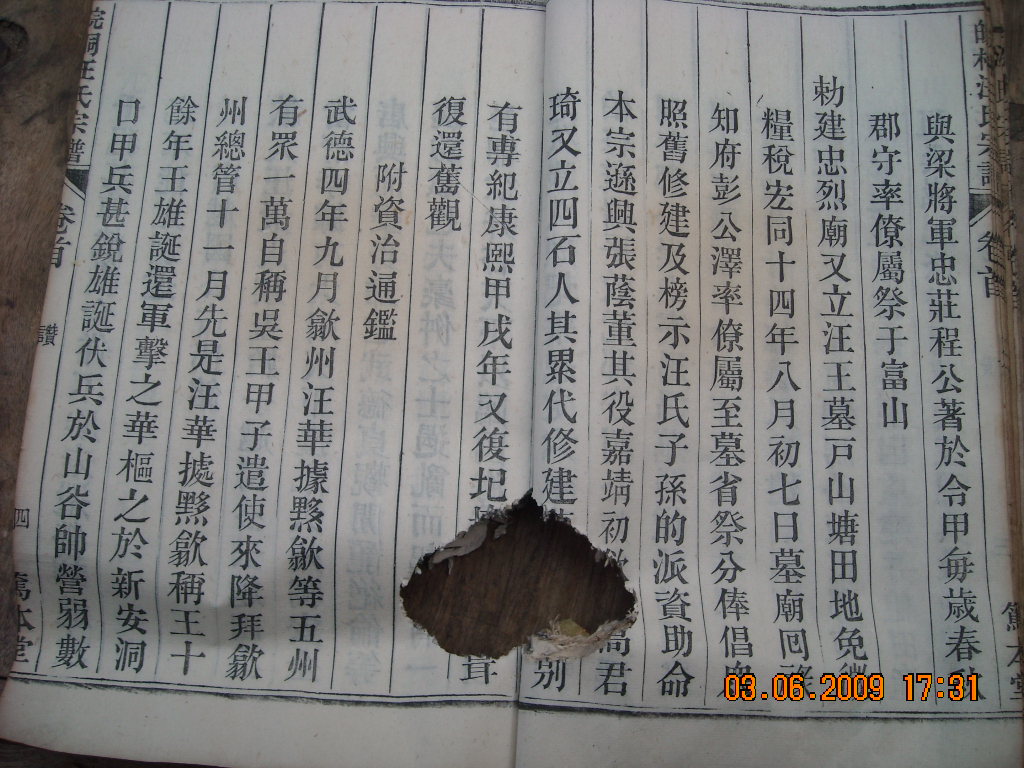 汪氏宗譜 卷首
與梁將軍忠莊程公著於令甲每歲春秋
郡守率僚屬祭于富山
勅建忠烈廟又立汪王墓戸山塘田地免徵
糧稅宏同十四年八月初七日墓廟囘祿
知府彭公澤率僚屬至墓省祭分俸倡衆
照舊修建及榜示汪氏子孫的派資助命
本宗遜興張蔭董其役嘉靖初高君
琦又立四石人其累代修建別
有專紀康熙甲戌年又復圯葺
復還舊觀
附資治通鑑
武德四年九月歙州汪華據黟歙等五州
有眾一萬自稱吳王甲子遣使來降拜歙
州總管十一月先是汪華㨿黟歙稱王十
餘年王雄誕還軍擊之華樞之於新安洞
口甲兵甚銳雄誕伏兵於山谷帥營弱數
皖桐汪氏宗譜 卷首 讚 四 篤本堂
03.06.2009 17:31